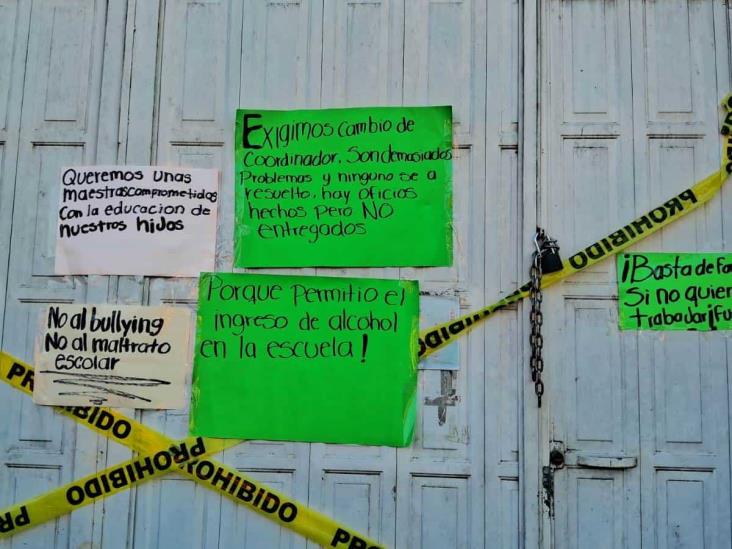 Exigimos cambio de
Coordinador. Son demasiados
Problemas y ninguno se a
resuelto, hay oficios
hechos pero NO
entregados
Queremos unas
maestras comprometidas
Con la educacion de
nuestros hijos
Porque permitio el
ingreso de alcohol
en la escuela!
No al bullying
No al maltrato
escolar
¡Basta de
Si no
trabajar
PROHIBIDO
PROHIBIDO
PROHIBIDO
PROHIBIDO
PROHIBIDO